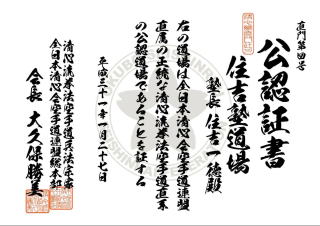 直門第四号
公認証書
住吉塾道場
塾長 住吉一徳殿
右の道場は全日本清心会空手道連盟
直属の正統な清心流米法空手道直系
の公認道場であることを証する
平成三十一年一月二十七日
清心流米法空手道兵法宗家
全日本清心会空手道連盟総本部
会長 大久保勝美